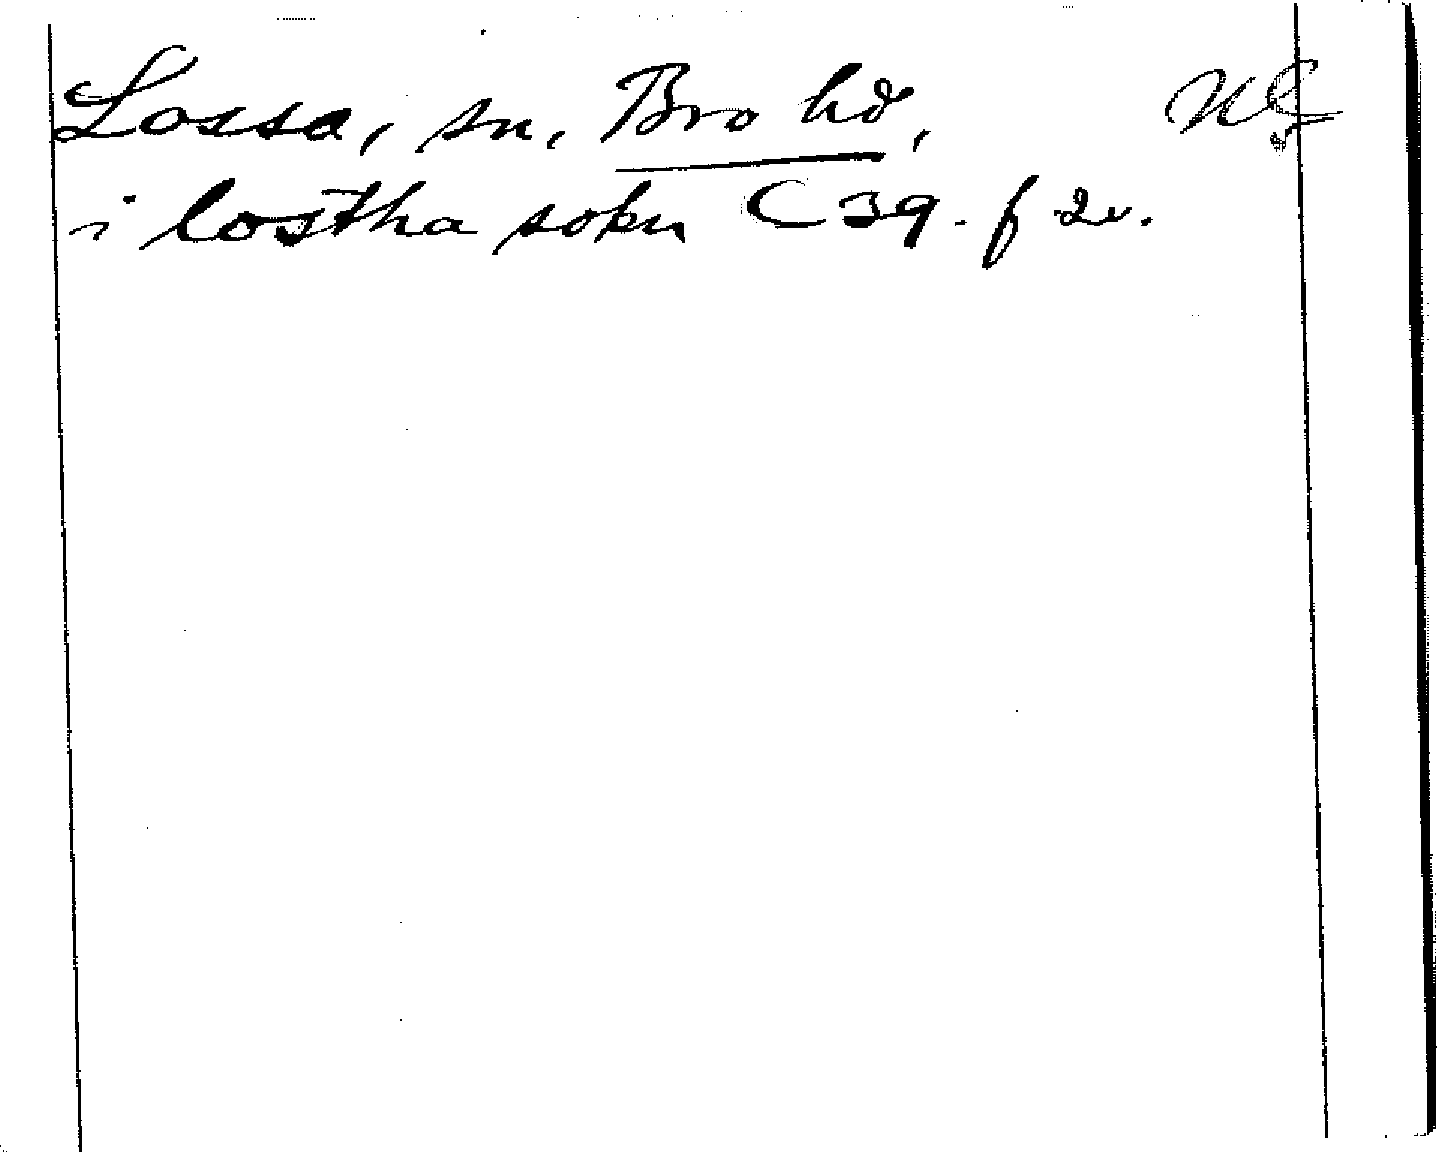 Lossa, sn, Bro hd,
i lostha sokn C 39. f 2v.